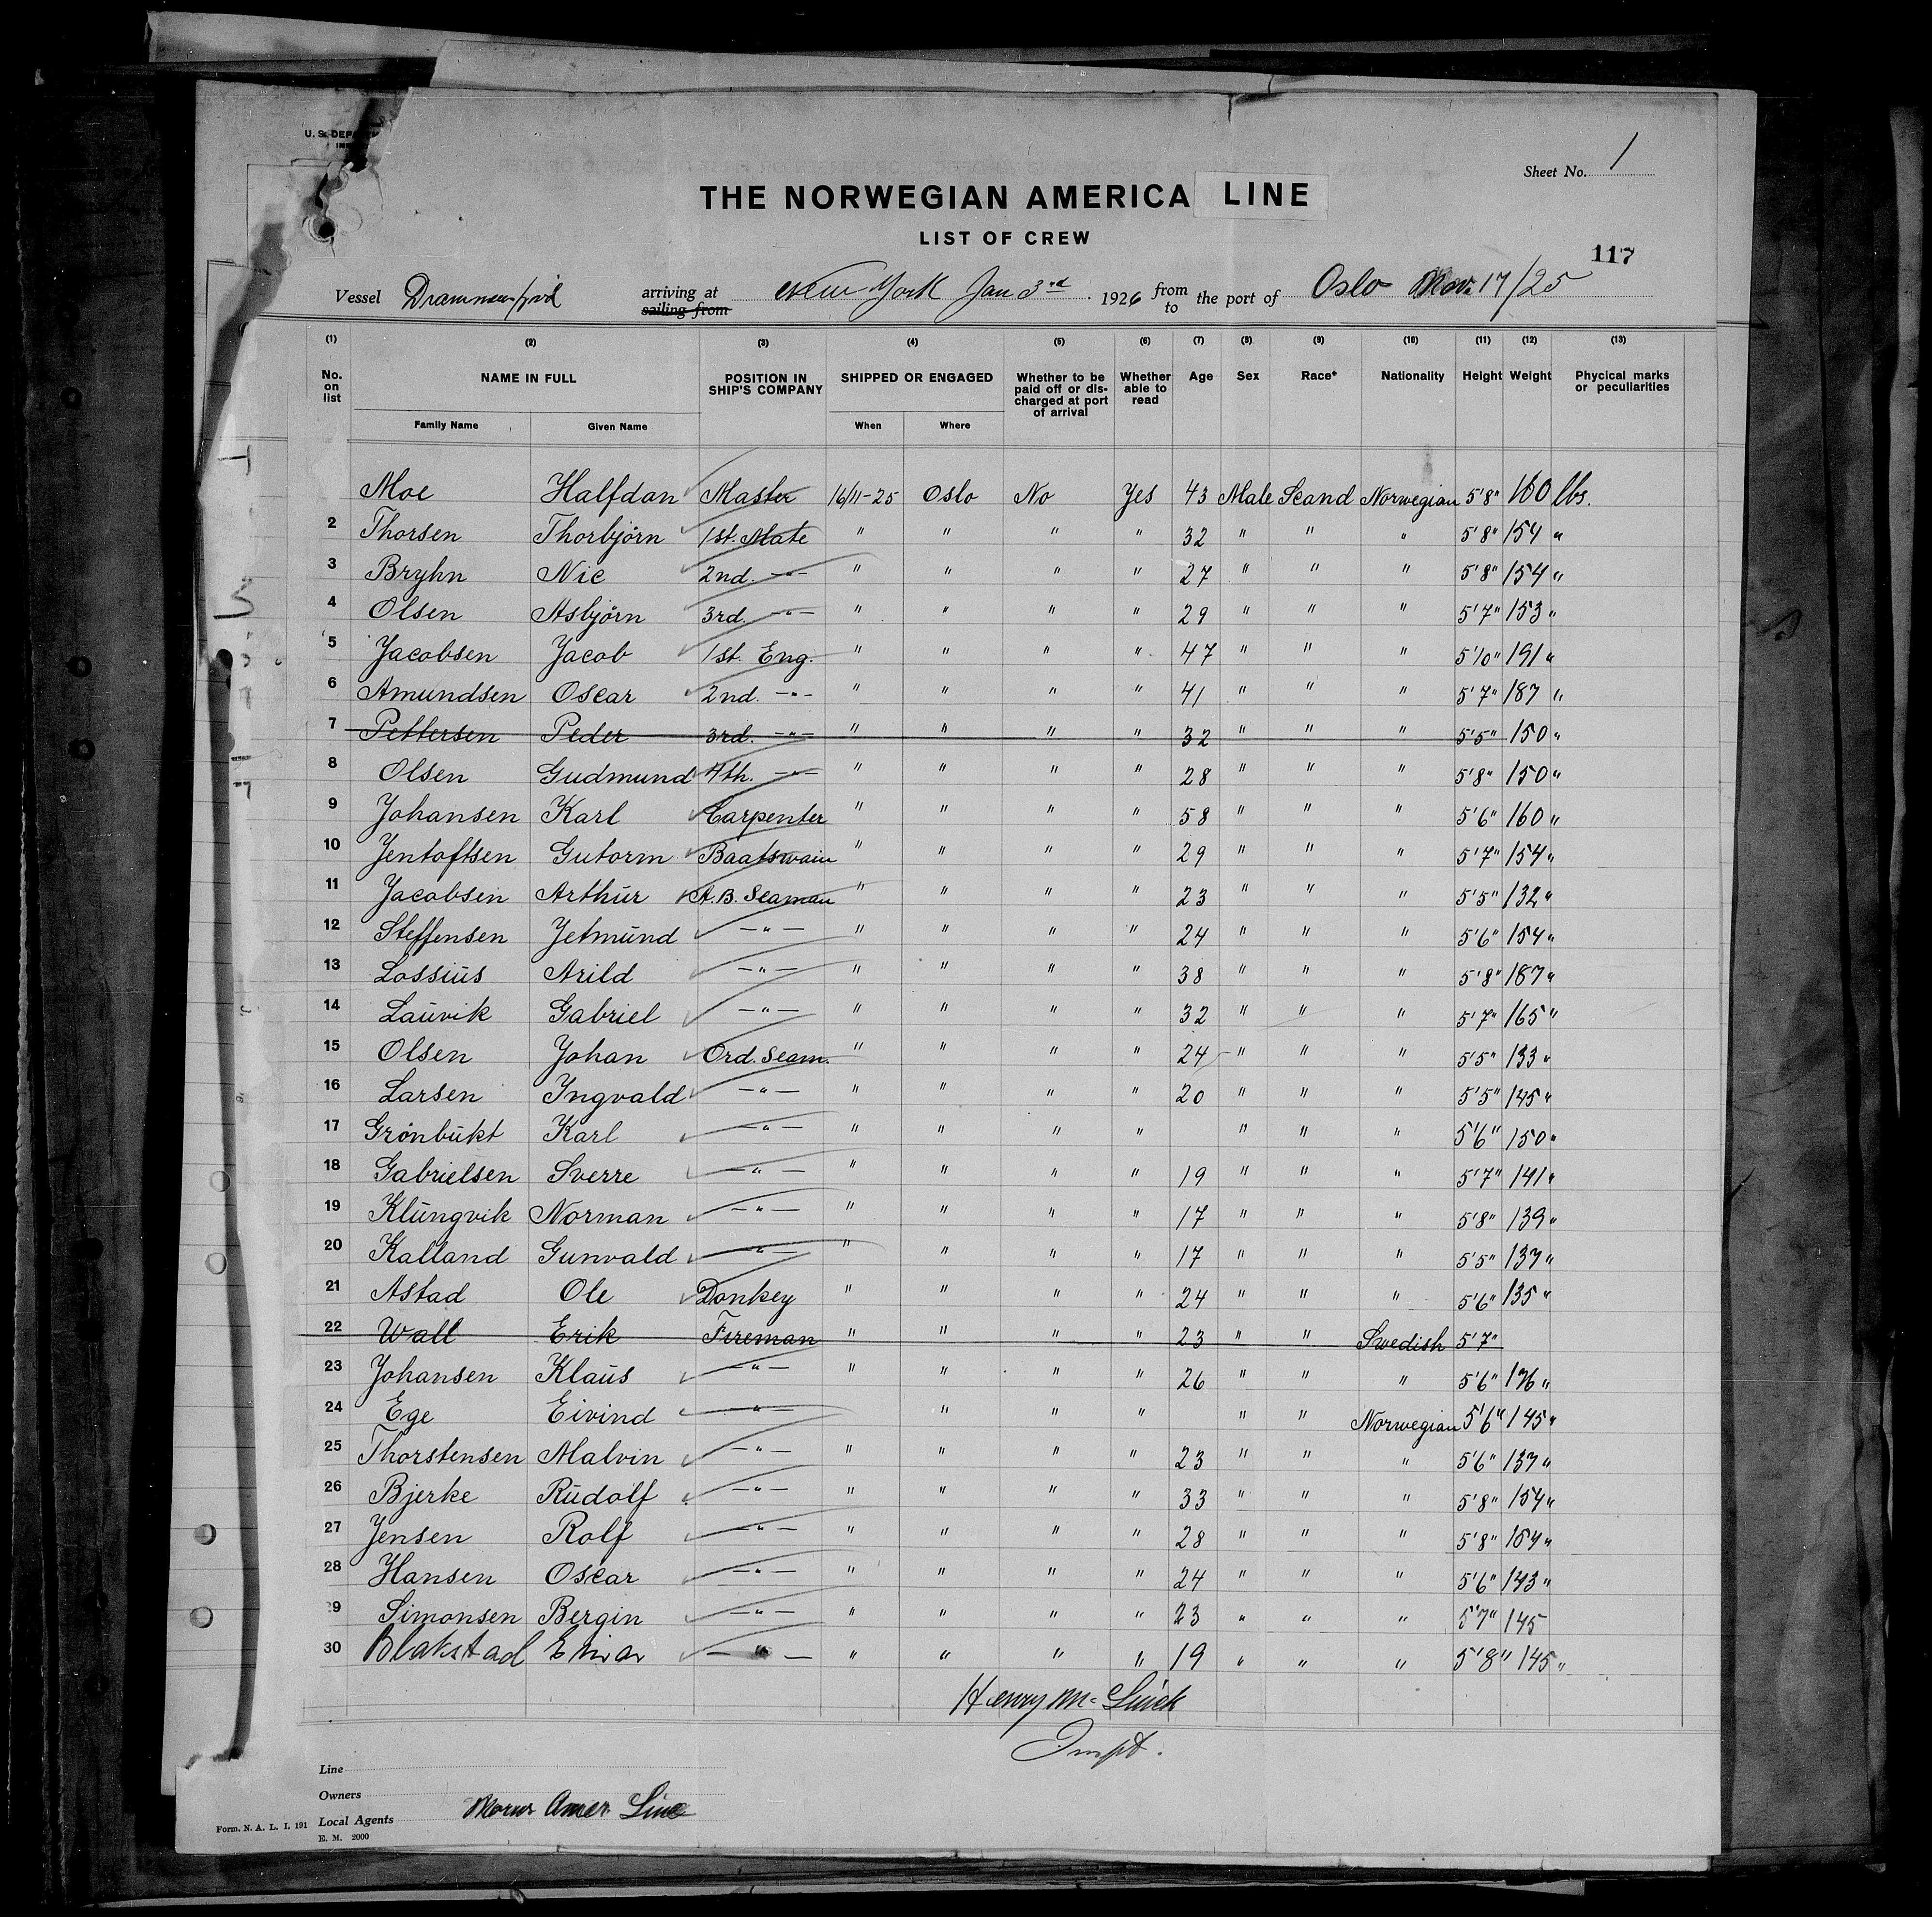 U. S. DEPARTM
IM
Sheet No. 1
THE NORWEGIAN AMERICA LINE
LIST OF CREW
117
Vessel Drammensfjord arriving at sailing from New York Jan 3rd. 1926 from to the port of Oslo Nov. 17/25
(1) (2) (3) (4) (5) (6) (7) (8) (9) (10) (11) (12) (13)
No. on list NAME IN FULL POSITION IN SHIP'S COMPANY SHIPPED OR ENGAGED Whether to be paid off or discharged at port of arrival Whether able to read Age Sex Race* Nationality Height Weight Phycical marks or peculiarities
Family Name Given Name When Where
Moe Halfdan Master 16/11-25 Oslo No Yes 43 Male Scand Norwegian 5'8" 160 lbs.
2 Thorsen Thorbjörn 1st. Mate " " " " 32 " " " 5'8" 154 "
3 Bryhn Nic 2nd. -"- " " " " 27 " " " 5'8" 154 "
4 Olsen Asbjörn 3rd. -"- " " " " 29 " " " 5'7" 153 "
5 Jacobsen Jacob 1st. Eng. " " " " 47 " " " 5'10" 191 "
6 Amundsen Oscar 2nd. -"- " " " " 41 " " " 5'7" 187 "
7 Pettersen Peder 3rd. -"- " " " " 32 " " " 5'5" 150 "
8 Olsen Gudmund 4th. -"- " " " " 28 " " " 5'8" 150 "
9 Johansen Karl Carpenter " " " " 58 " " " 5'6" 160 "
10 Jentoftsen Gutorm Baatswain " " " " 29 " " " 5'7" 154 "
11 Jacobsen Arthur A.B. Seaman " " " " 23 " " " 5'5" 132 "
12 Steffensen Jetmund -"- " " " " 24 " " " 5'6" 154 "
13 Lossius Arild -"- " " " " 38 " " " 5'8" 187 "
14 Lauvik Gabriel -"- " " " " 32 " " " 5'7" 165 "
15 Olsen Johan Ord. Seam. " " " " 24 " " " 5'5" 133 "
16 Larsen Yngvald -"- " " " " 20 " " " 5'5" 145 "
17 Grönbukt Karl -"- " " " " " " " 5'6" 150 "
18 Gabrielsen Sverre -"- " " " " 19 " " " 5'7" 141 "
19 Klungvik Norman -"- " " " " 17 " " " 5'8" 139 "
20 Kalland Gunvald -"- " " " " 17 " " " 5'5" 137 "
21 Astad Ole Donkey " " " " 24 " " " 5'6" 135 "
22 Wall Erik Fireman " " " " 23 " " Swedish 5'7"
23 Johansen Klaus -"- " " " " 26 " " " 5'6" 176 "
24 Ege Eivind -"- " " " " " Norwegian 5'6" 145 "
25 Thorstensen Malvin -"- " " " " 23 " " " 5'6" 137 "
26 Bjerke Rudolf -"- " " " " 33 " " " 5'8" 154 "
27 Jensen Rolf -"- " " " " 28 " " " 5'8" 164 "
28 Hansen Oscar -"- " " " " 24 " " " 5'6" 143 "
29 Simonsen Bergin -"- " " " " 23 " " " 5'7" 145
30 Blakstad Einar -"- " " " " 19 " " " 5'8" 145 "
Henry Mc
Inspt.
Line
Owners
Local Agents Norw Amer Line
Form. N. A. L. I. 191
E. M. 2000